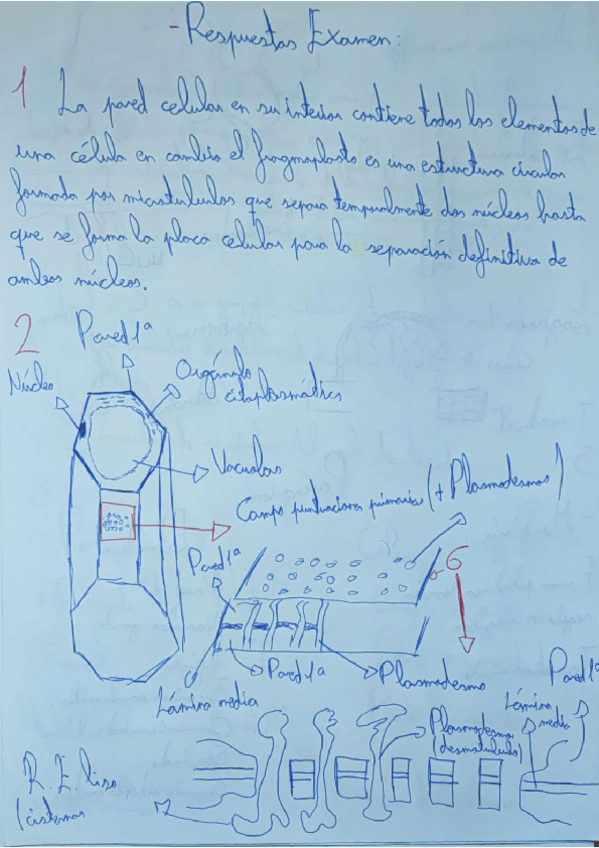 - Respuestas Examen:
1 La pared celular en su interior contiene todos los elementos de
una célula en cambio el fragmoplasto es una estructura circular
formada por microtubulos que separa temporalmente dos núcleos hasta
que se forma la placa celular para la separación definitiva de
ambos núcleos.
2 Pared 1ª
Núcleo
Orgánulo
citoplasmático
Vacuolas
Campo puntuaciones primarias (+ Plasmodesmos)
6
Pared 1ª
Pared 1ª
Plasmodesmo
Lámina media
Pared 1ª
Lámina
media
Plasmodesmo
(desmotubulo)
R. E liso
/cisternas